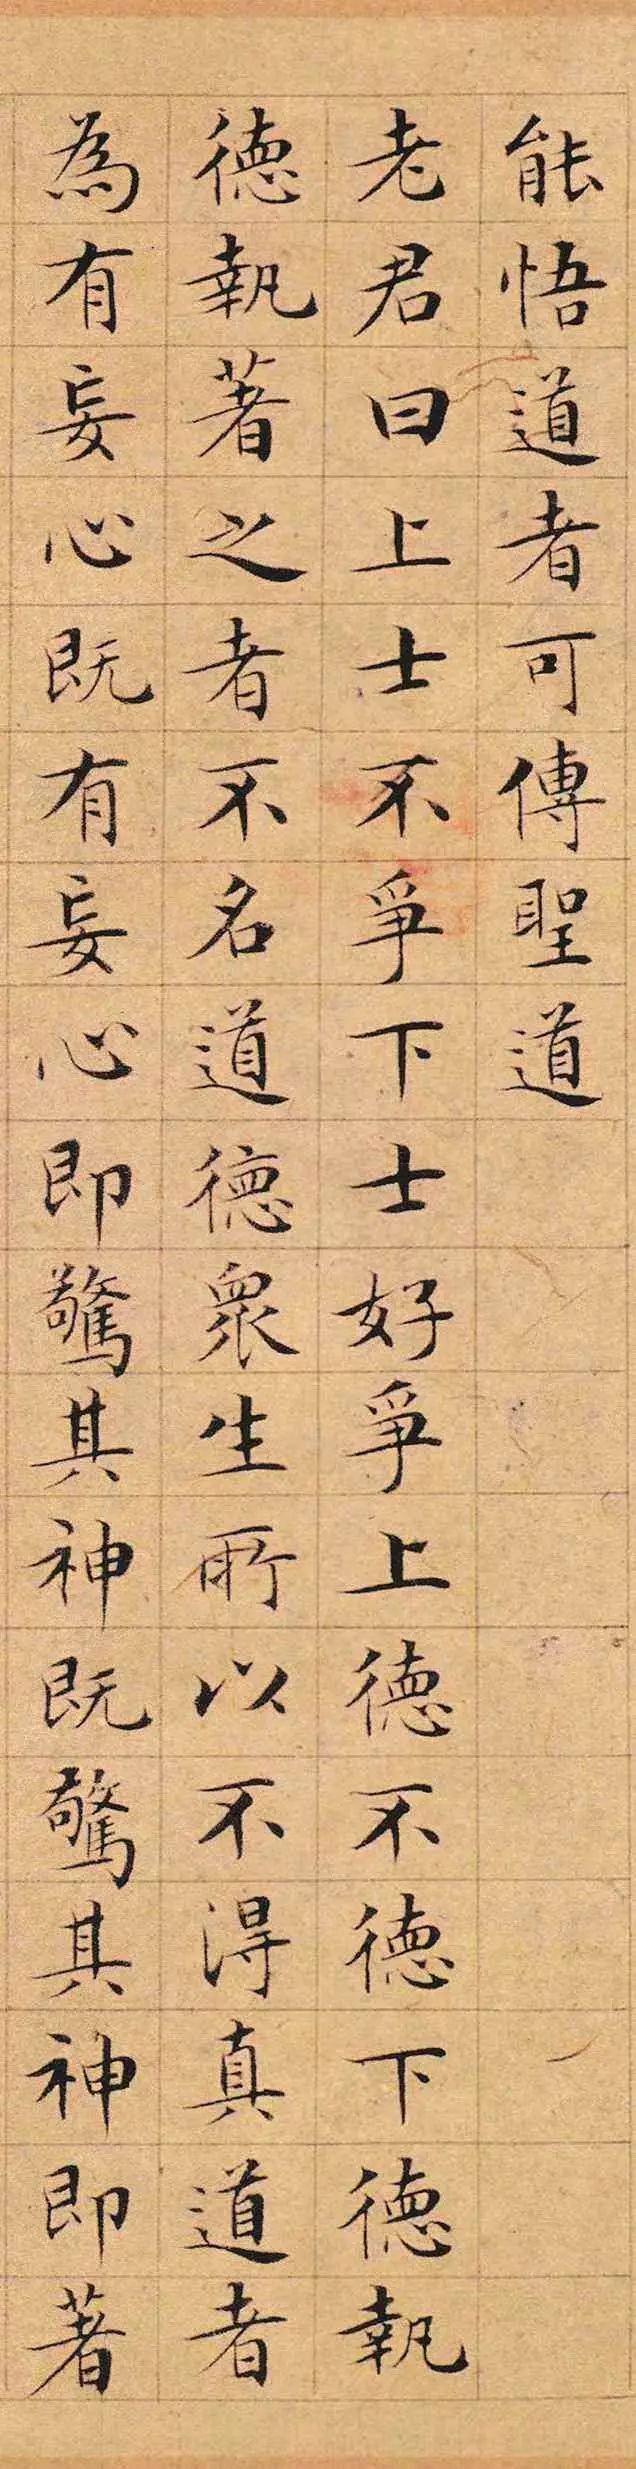 能悟道者可傳聖道
老君曰上士不爭下士好爭上德不德下德執
德執著之者不名道德眾生所以不得真道者
為有妄心既有妄心即驚其神既驚其神即著